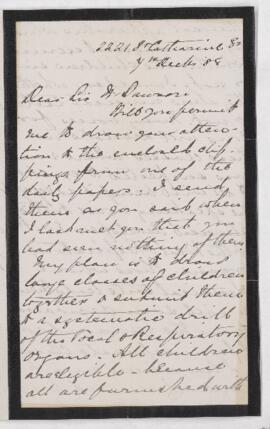 2221 St Catharine St
7th Decbr 88
Dear Sir W Dawson
Will you permit
me to draw your atten-
tion to the enclosed clip-
pings from one of the
daily papers. I send
them as you said when
I last met you that you
had seen nothing of them
My plan is to draw
large classes of children
together & submit them
to a systematic drill
of the Vocal & Respiratory
Organs. All children
are eligible - because
all are furnished with